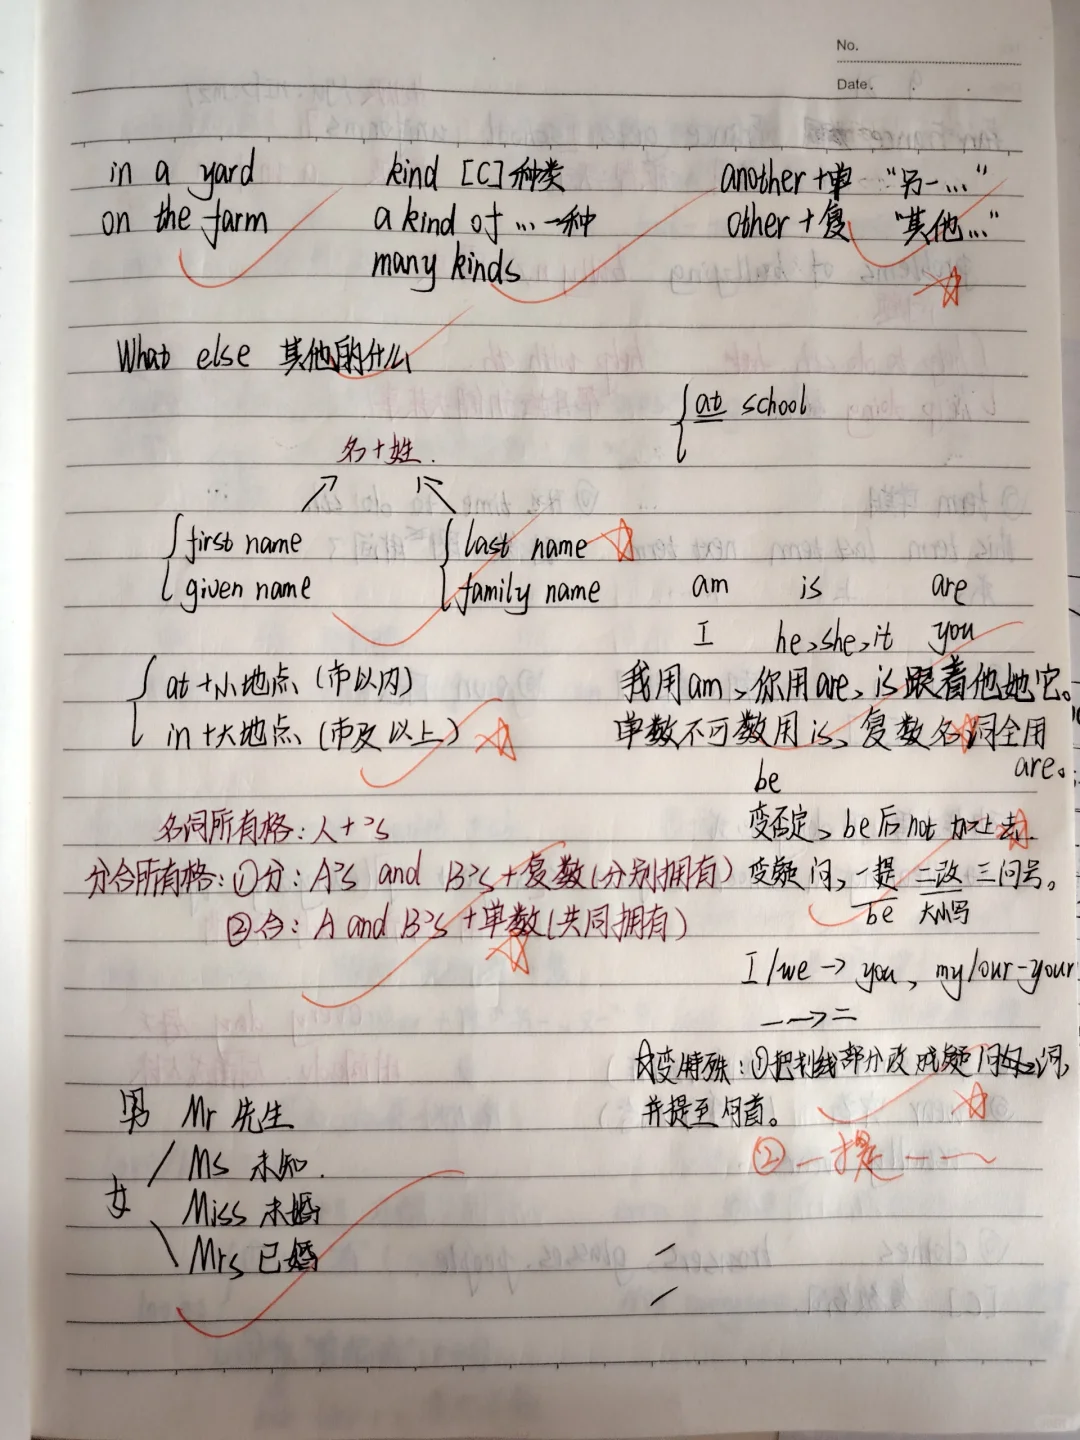 No.
Date.
in a yard
on the farm
kind [C] 种类
a kind of ... 一种
many kinds
another + 单 "另一..."
other + 复 "其他..."
What else 其他的什么
at school
名 + 姓.
first name
given name
last name
family name
am is are
I he, she, it you
at + 小地点 (市以内)
in + 大地点 (市及以上)
我用 am, 你用 are, is 跟着他她它。
单数不可数用 is, 复数名词全用
are。
be
变否定, be 后 not 加上去.
变疑问, 一提 二改 三问号。
be 大小写
I/we → you, my/our-your
一 → 二
☆变特殊: ①把划线部分改成疑问词,
并提至句首。
② 一提
名词所有格: 人 + 's
分合所有格: ①分: A's and B's + 复数 (分别拥有)
②合: A and B's + 单数 (共同拥有)
男 Mr 先生
女
Ms 未知.
Miss 未婚
Mrs 已婚